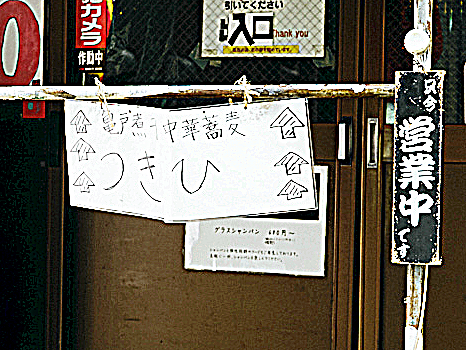 カメラ
作動中
引いてください
入口
Thank you
亀戸煮干中華蕎麦
つきひ
只今
営業中
です
グラスシャンパン 690円～